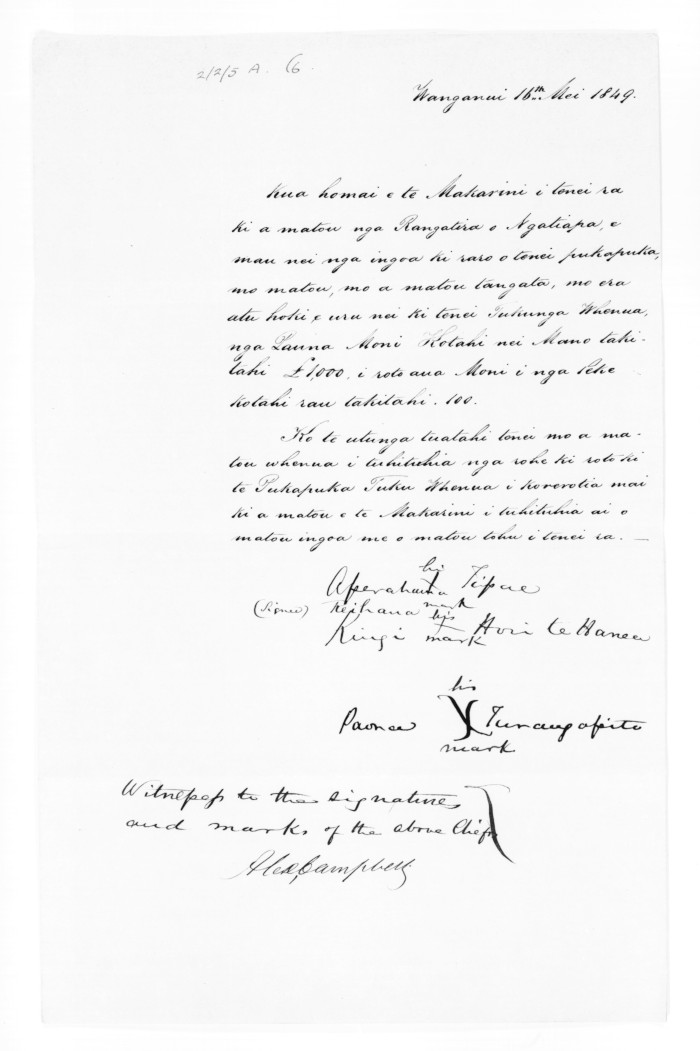 2/2/5 A. 6.
Wanganui 16th Mei 1849.
Kua homai e te Makarini i tenei ra
ki a matou nga Rangatira o Ngatiapa, e
mau nei nga ingoa ki raro o tenei pukapuka,
mo matou, mo a matou tangata, mo era
atu hoki e uru nei ki tenei Tukunga Whenua,
nga Pauna Moni Kotahi nei Mano taki-
tahi £1,000, i roto aua Moni i nga Peke
kotahi rau takitahi. 100.
Ko te utunga tuatahi tenei mo a ma-
tou whenua i tuhituhia nga rohe ki roto ki
te Pukapuka Tuku Whenua i korerotia mai
ki a matou e te Makarini i tuhituhia ai o
matou ingoa me o matou tohu i tenei ra. —
his
Aperahama Tipae
mark
(Signed) Keihana his
Kingi mark Hori te Hanea
his
Paorea X Turangapito
mark
Witness to the signatures
and marks of the above Chiefs
Alex. Campbell